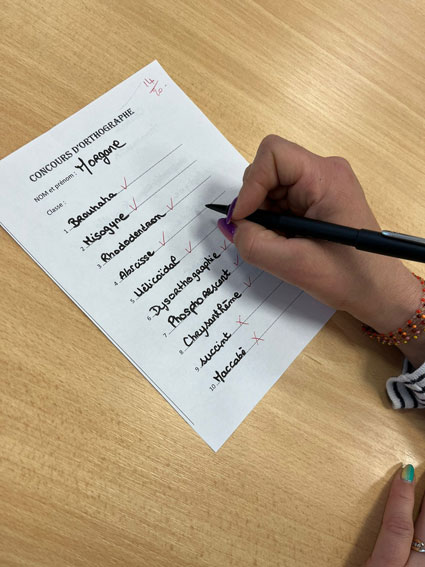 14/20
CONCOURS D'ORTHOGRAPHE
NOM et prénom : Morgane
Classe :
1. Brouhaha
2. Misogyne
3. Rhododendron
4. Abscisse
5. Hélicoïdal
6. Dysorthographie
7. Phosphorescent
8. Chrysanthème
9. succint
10. Maccabé